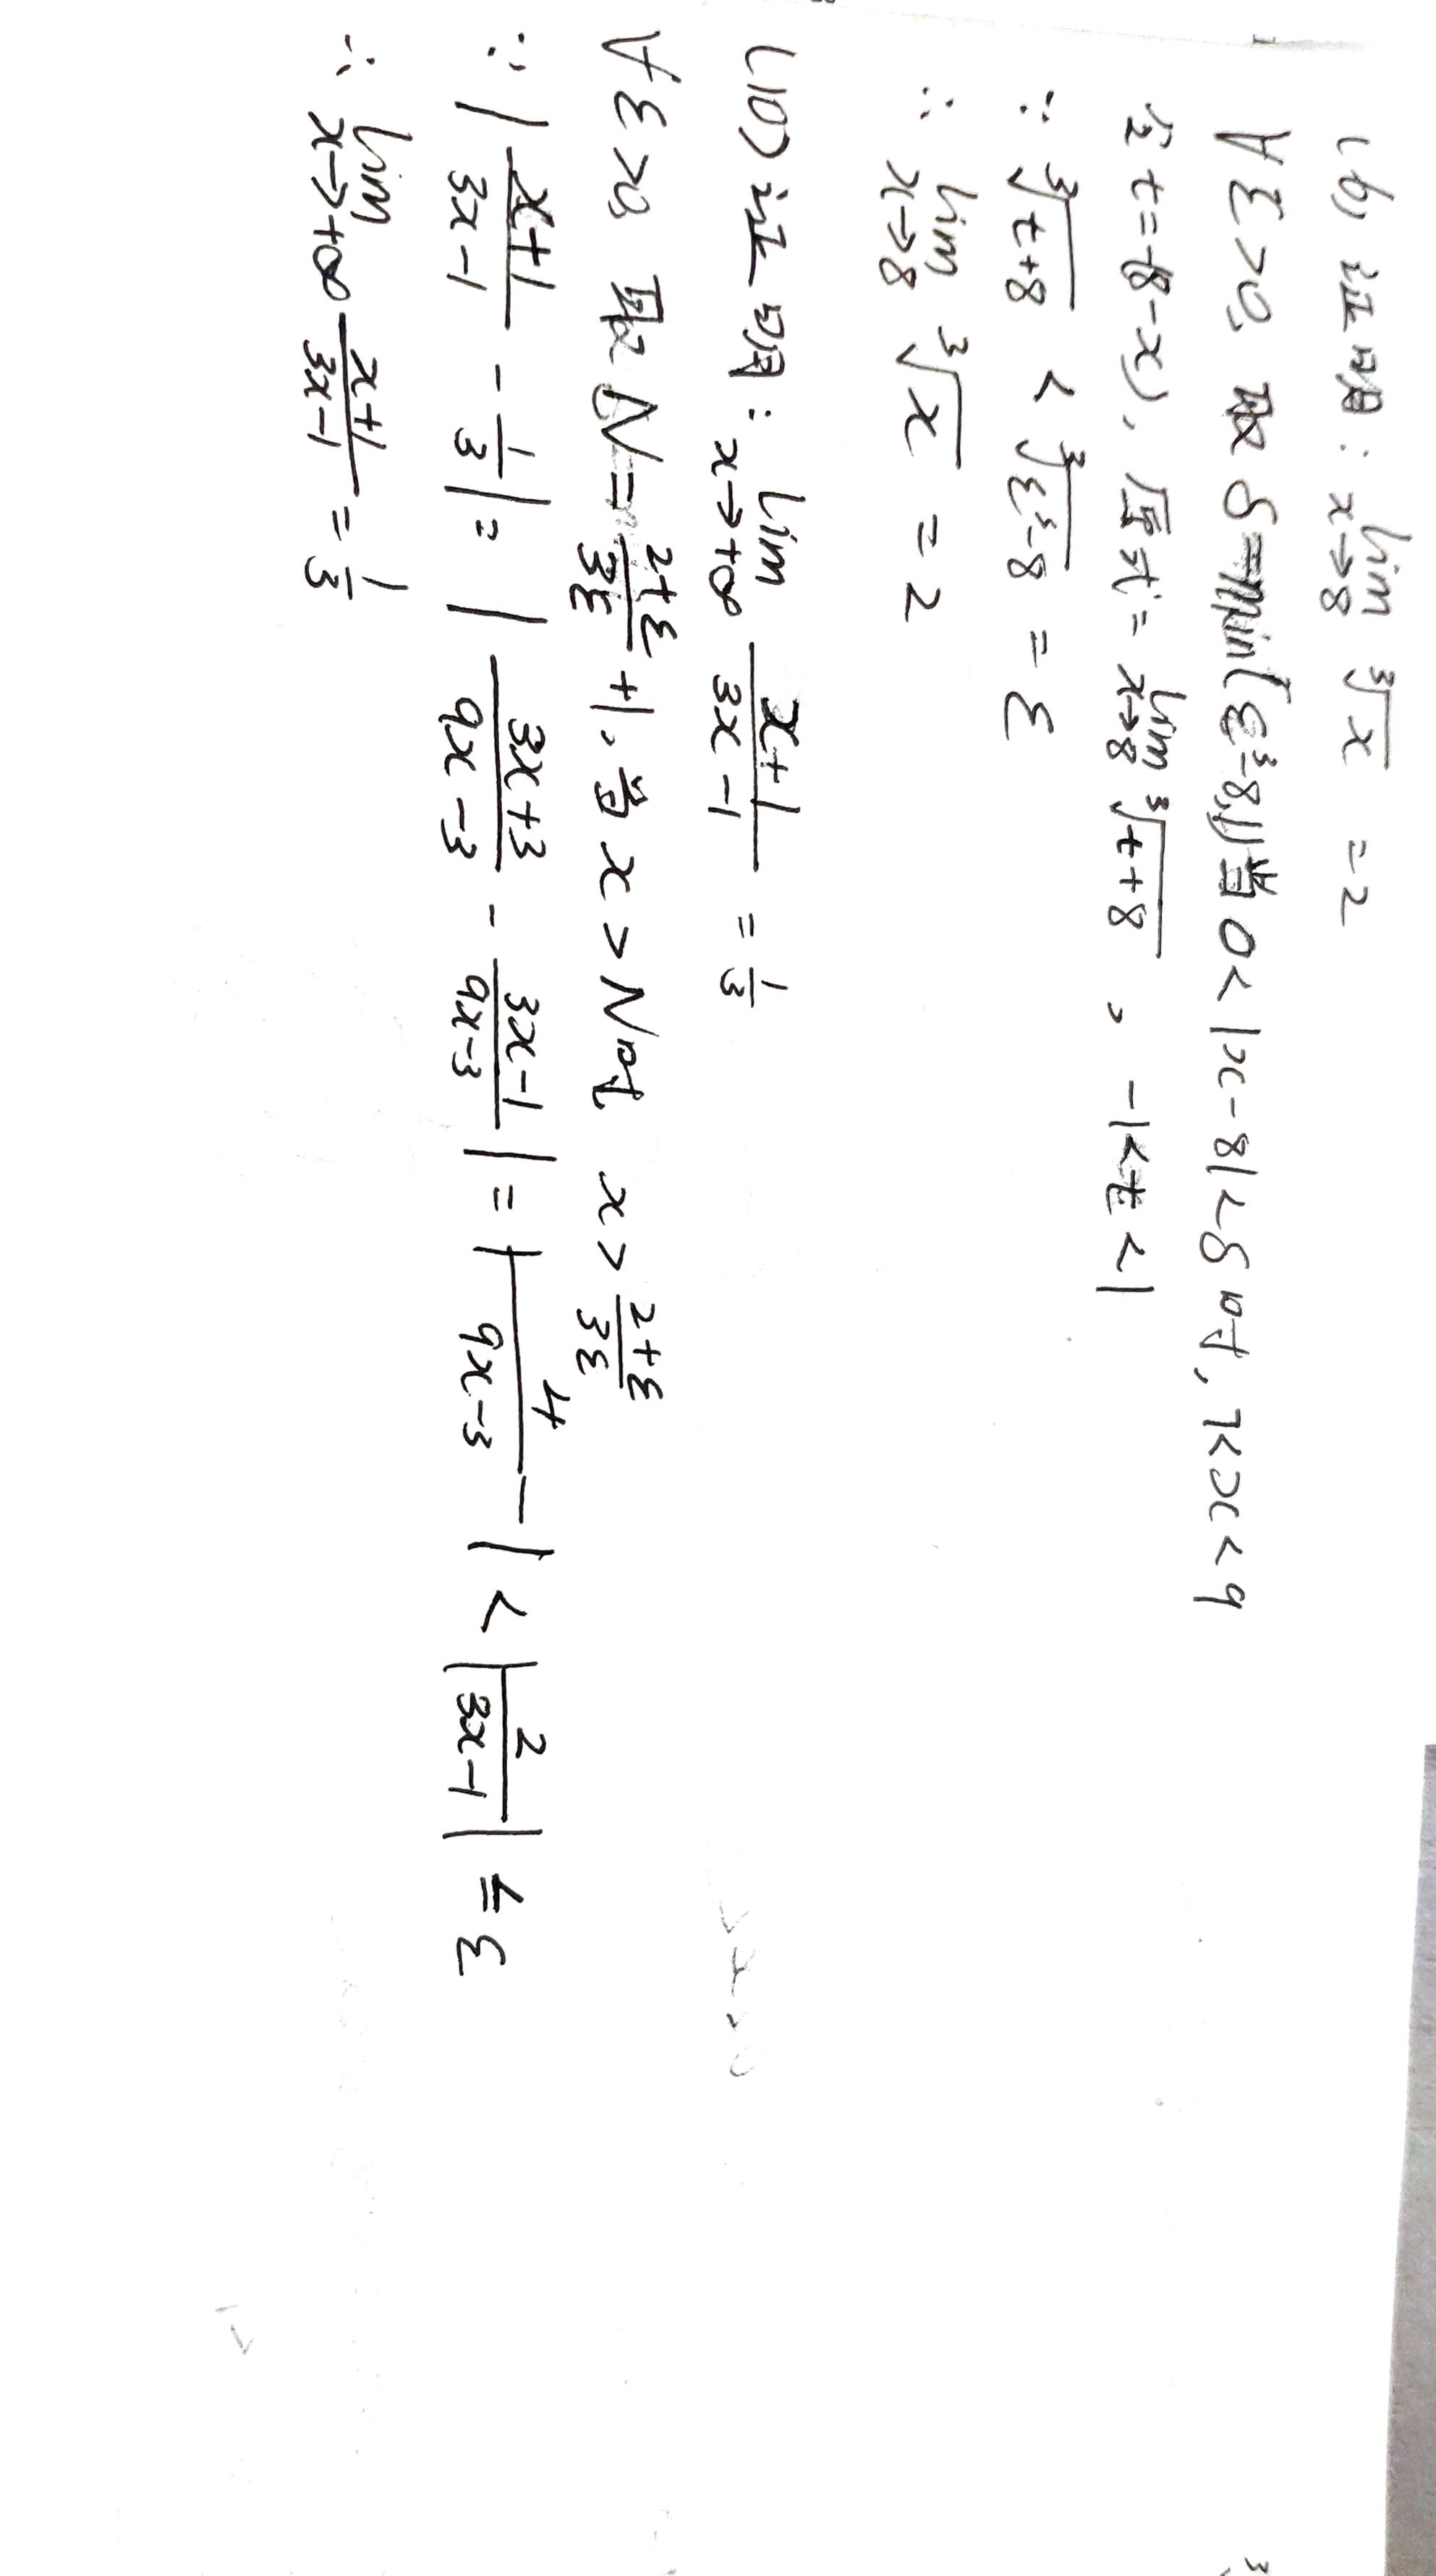 (6) 证明: lim x→8 ∛x = 2
∀ε>0, 取 δ=min(ε³-8,1)当 0<|x-8|<δ时, 7<x<9
令 t=-(8-x), 原式= lim x→8 ∛(t+8) , -1<t<1
∵ ∛(t+8) < ∛(ε³-8) = ε
∴ lim x→8 ∛x = 2
(10) 证明: lim x→+∞ (x+1)/(3x-1) = 1/3
∀ε>0, 取 N = (2+ε)/(3ε) +1, 当 x>N时, x > (2+ε)/(3ε)
∵ | (x+1)/(3x-1) - 1/3 | = | (3x+3)/(9x-3) - (3x-1)/(9x-3) | = | 4/(9x-3) | < | 2/(3x-1) | ≤ ε
∴ lim x→+∞ (x+1)/(3x-1) = 1/3